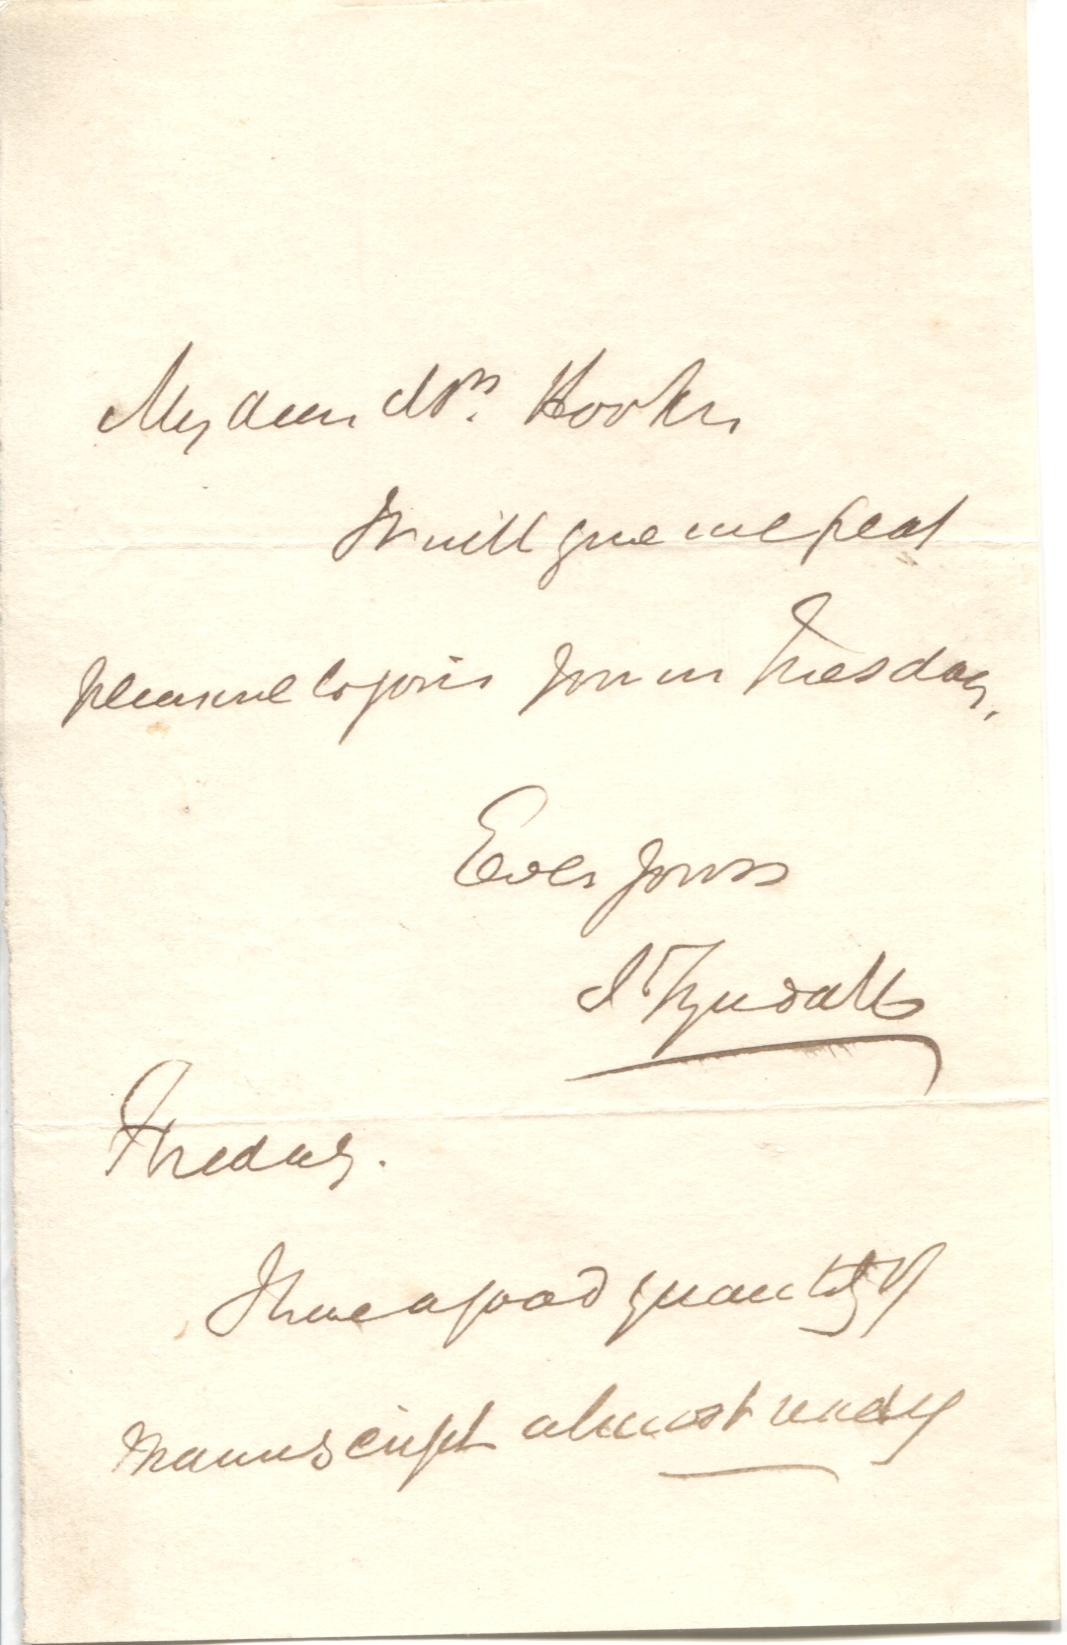 My dear Mrs. Hooker,
It will give me great
pleasure to join you on Tuesday.
Ever yours
J. Tyndall
Friday.
I have a good quantity of
manuscript almost ready